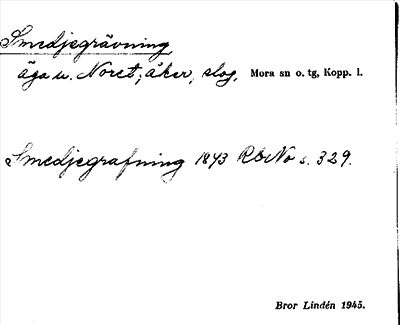 Smedjegrävning
äga u. Noret; åker, slog, Mora sn o. tg, Kopp. l.
Smedjegrafning 1843 RSNo s. 329.
Bror Lindén 1945.